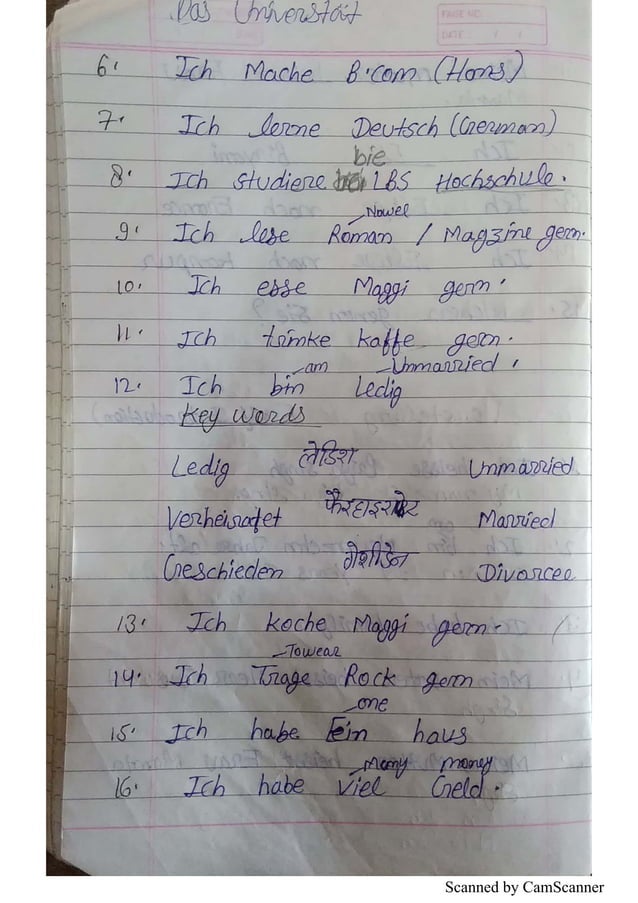 Das Universtät
PAGE NO:
DATE: / /
6. Ich Mache B.com (Hons)
7. Ich lerne Deutsch (German)
bie
8. Ich studiere LBS Hochschule.
Nowel
9. Ich lese Roman / Magzine gern.
10. Ich esse Maggi gern.
11. Ich trimke kaffe gern.
am Unmarried.
12. Ich bin Ledig
Key words
Ledig लेडिश Unmarried
Verheiratet फैरहाइराटेर Married
Geschieden गेशीडेन Divorcee
13. Ich koche Maggi gern. /
Towear
14. Ich Trage Rock gern
one
15. Ich habe Ein haus
Many money
16. Ich habe Viel Geld.
Scanned by CamScanner